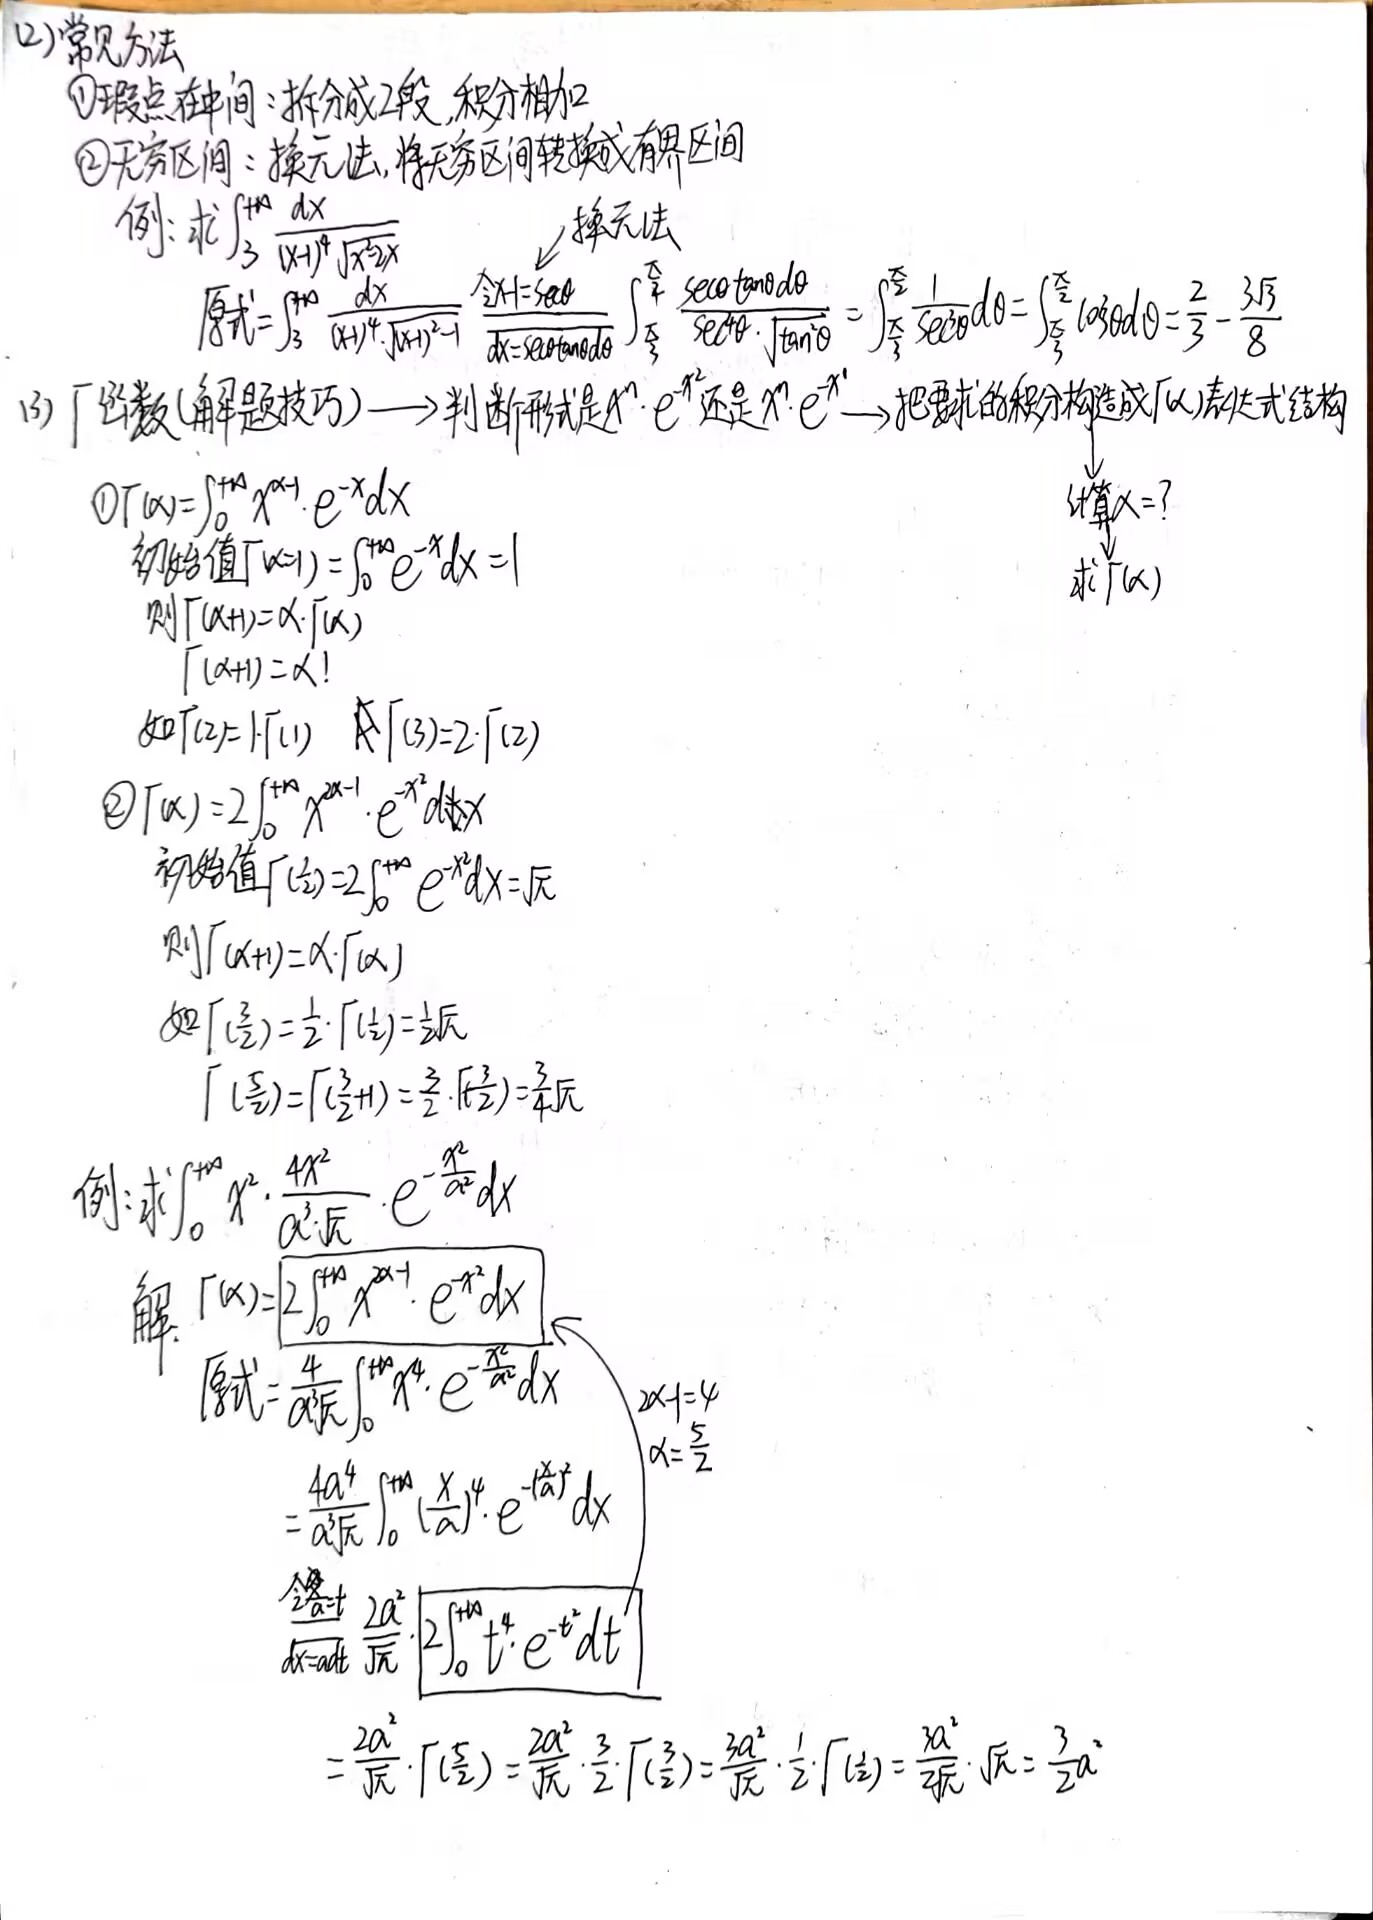 (2)常见方法
①瑕点在中间：拆分成2段，积分相加
②无穷区间：换元法，将无穷区间转换成有界区间
例：求∫₃^{+∞} dx/((x-1)⁴√(x²-2x))
换元法
原式=∫₃^{+∞} dx/((x-1)⁴·√((x-1)²-1)) 令x-1=secθ dx=secθtanθdθ ∫_{π/3}^{π/2} secθtanθdθ/(sec⁴θ·√(tan²θ)) = ∫_{π/3}^{π/2} 1/sec³θ dθ = ∫_{π/3}^{π/2} cos³θdθ = 2/3 - 3√3/8
(3)Γ函数(解题技巧)→判断形式是xⁿ·e^{-x²}还是xⁿ·e^{-x¹}→把要求的积分构造成Γ(α)表达式结构
↓
计算α=?
↓
求Γ(α)
①Γ(α)=∫₀^{+∞} x^{α-1}·e^{-x}dx
初始值Γ(α=1)=∫₀^{+∞} e^{-x}dx=1
则Γ(α+1)=α·Γ(α)
Γ(α+1)=α!
如Γ(2)=1·Γ(1) Γ(3)=2·Γ(2)
②Γ(α)=2∫₀^{+∞} x^{2α-1}·e^{-x²}dx
初始值Γ(1/2)=2∫₀^{+∞} e^{-x²}dx=√π
则Γ(α+1)=α·Γ(α)
如Γ(3/2)=1/2·Γ(1/2)=1/2√π
Γ(5/2)=Γ(3/2+1)=3/2·Γ(3/2)=3/4√π
例：求∫₀^{+∞} x²·4x²/(a³·√π)·e^{-x²/a²}dx
解: Γ(α)=2∫₀^{+∞} x^{2α-1}·e^{-x²}dx
原式=4/(a³√π)∫₀^{+∞} x⁴·e^{-x²/a²}dx
2α-1=4
α=5/2
=4a⁴/(a³√π)∫₀^{+∞} (x/a)⁴·e^{-(x/a)²}dx
令x/a=t dx=adt 2a²/√π·2∫₀^{+∞} t⁴·e^{-t²}dt
=2a²/√π·Γ(5/2)=2a²/√π·3/2·Γ(3/2)=3a²/√π·1/2·Γ(1/2)=3a²/(2√π)·√π=3/2a²